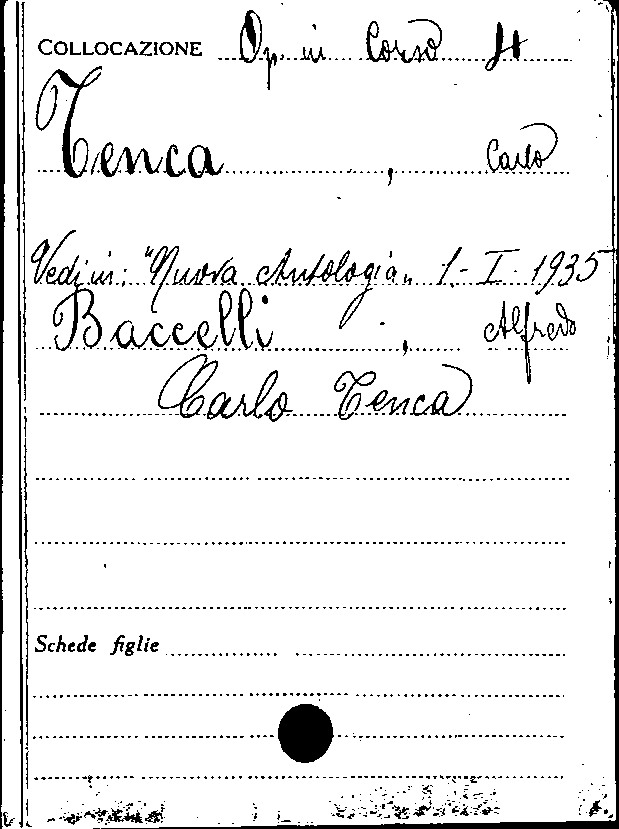 COLLOCAZIONE Op. in Corso 4
Tenca, Carlo
Vedi in: "Nuova Antologia„ 1.-I-1935
Baccelli, Alfredo
Carlo Tenca
Schede figlie